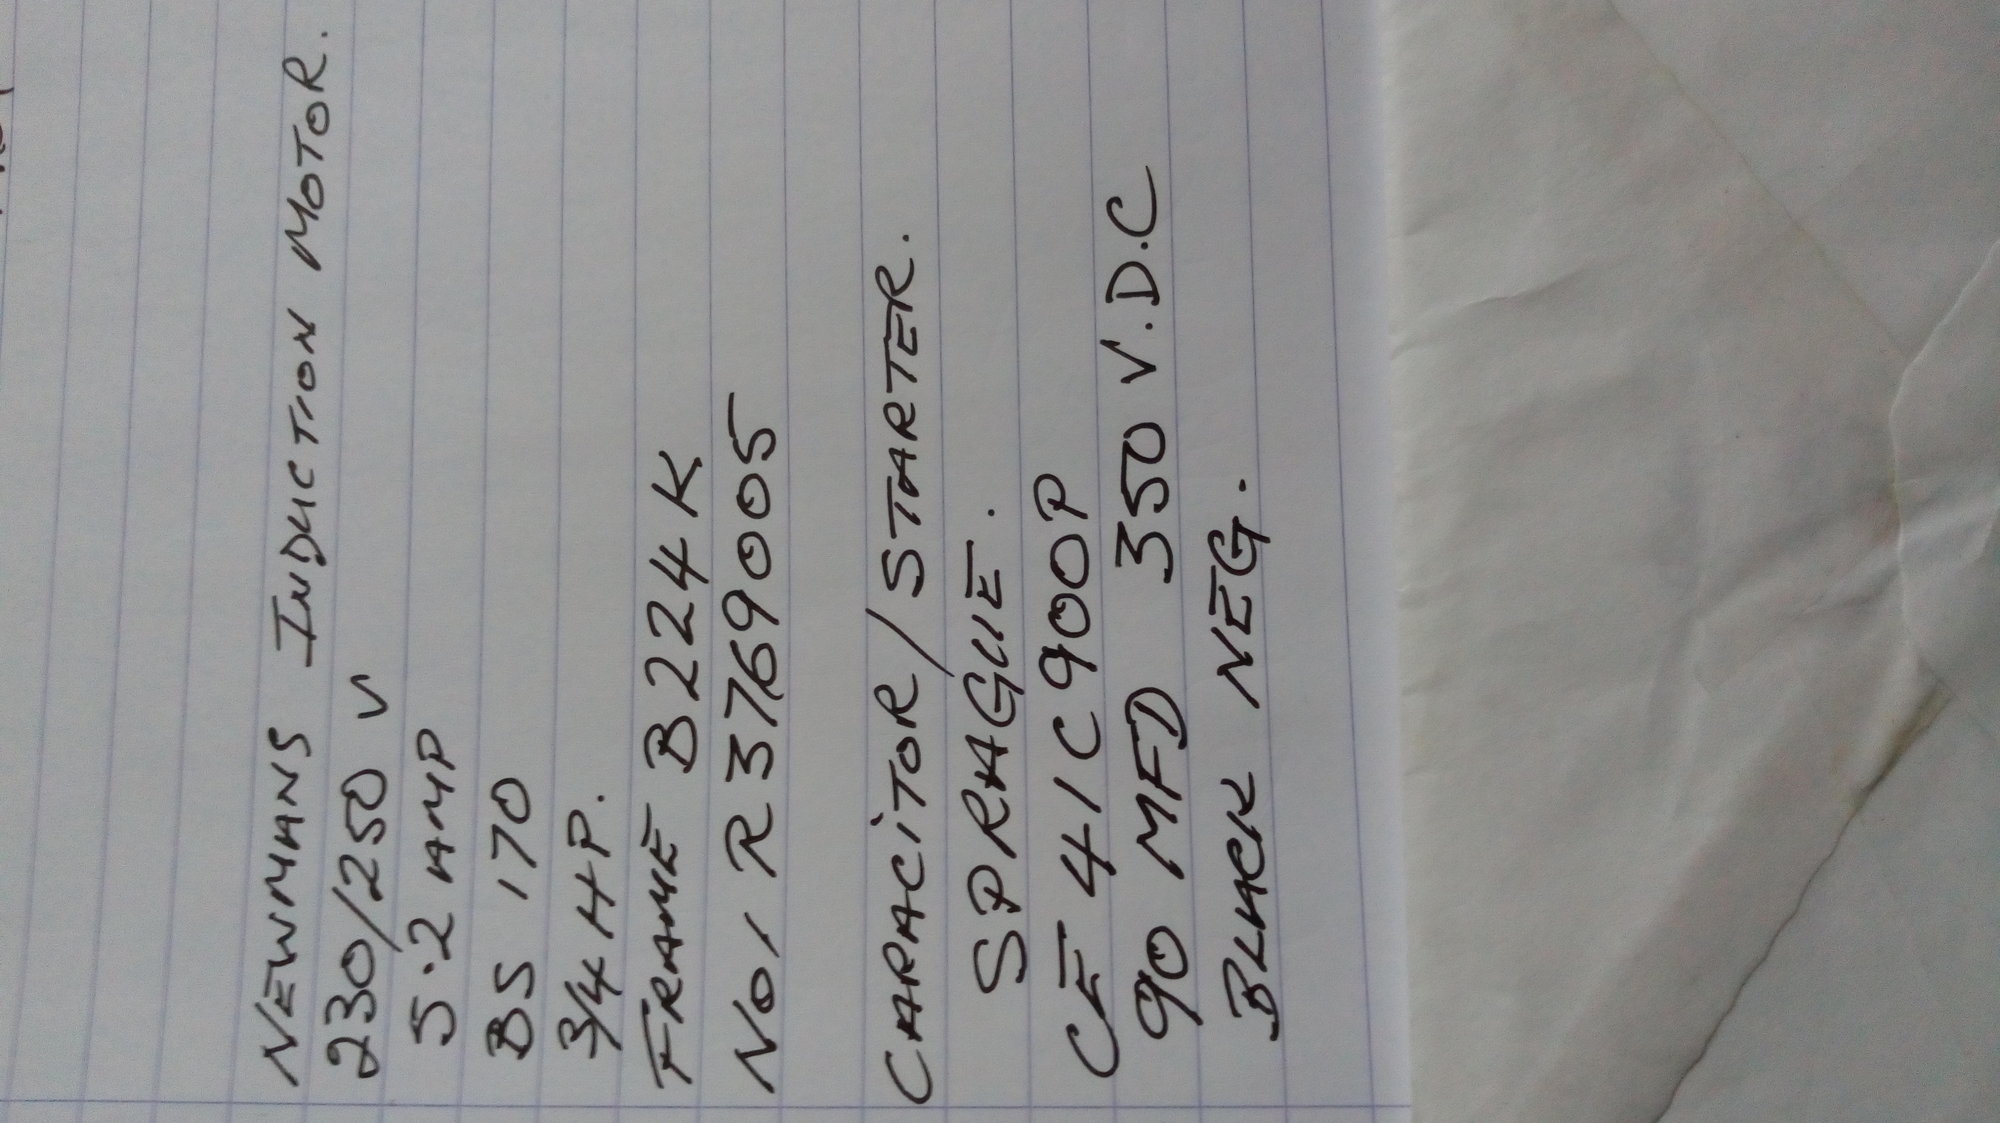 NEWMANS INDUCTION MOTOR.
230/250 V
5.2 AMP
BS 170
3/4 H.P.
FRAME B224K
No, R3769005
CAPACITOR/STARTER.
SPRAGUE.
CE 41C900P
90 MFD 350 V.D.C
BLACK NEG.